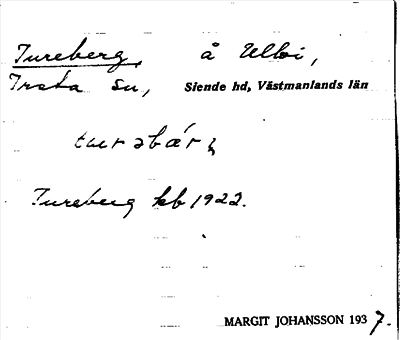 Tureberg, å Ullvi,
Irsta sn, Siende hd, Västmanlands län
turəbær,
Tureberg kb 1922.
MARGIT JOHANSSON 1937.